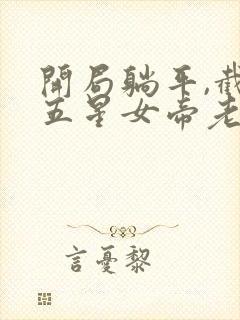 開局躺平,截
五星女帝老
言憂黎